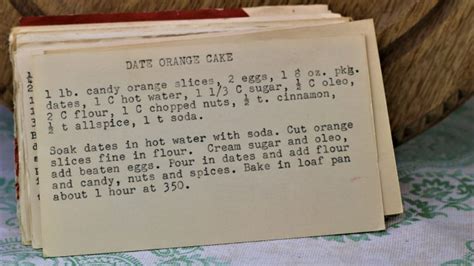 DATE ORANGE CAKE
1 lb. candy orange slices, 2 eggs, 1 8 oz. pkg.
dates, 1 C hot water, 1 1/3 C sugar, ½ C oleo,
2 C flour, 1 C chopped nuts, ½ t. cinnamon,
½ t allspice, 1 t soda.
Soak dates in hot water with soda. Cut orange
slices fine in flour. Cream sugar and oleo,
add beaten eggs. Pour in dates and add flour
and candy, nuts and spices. Bake in loaf pan
about 1 hour at 350.